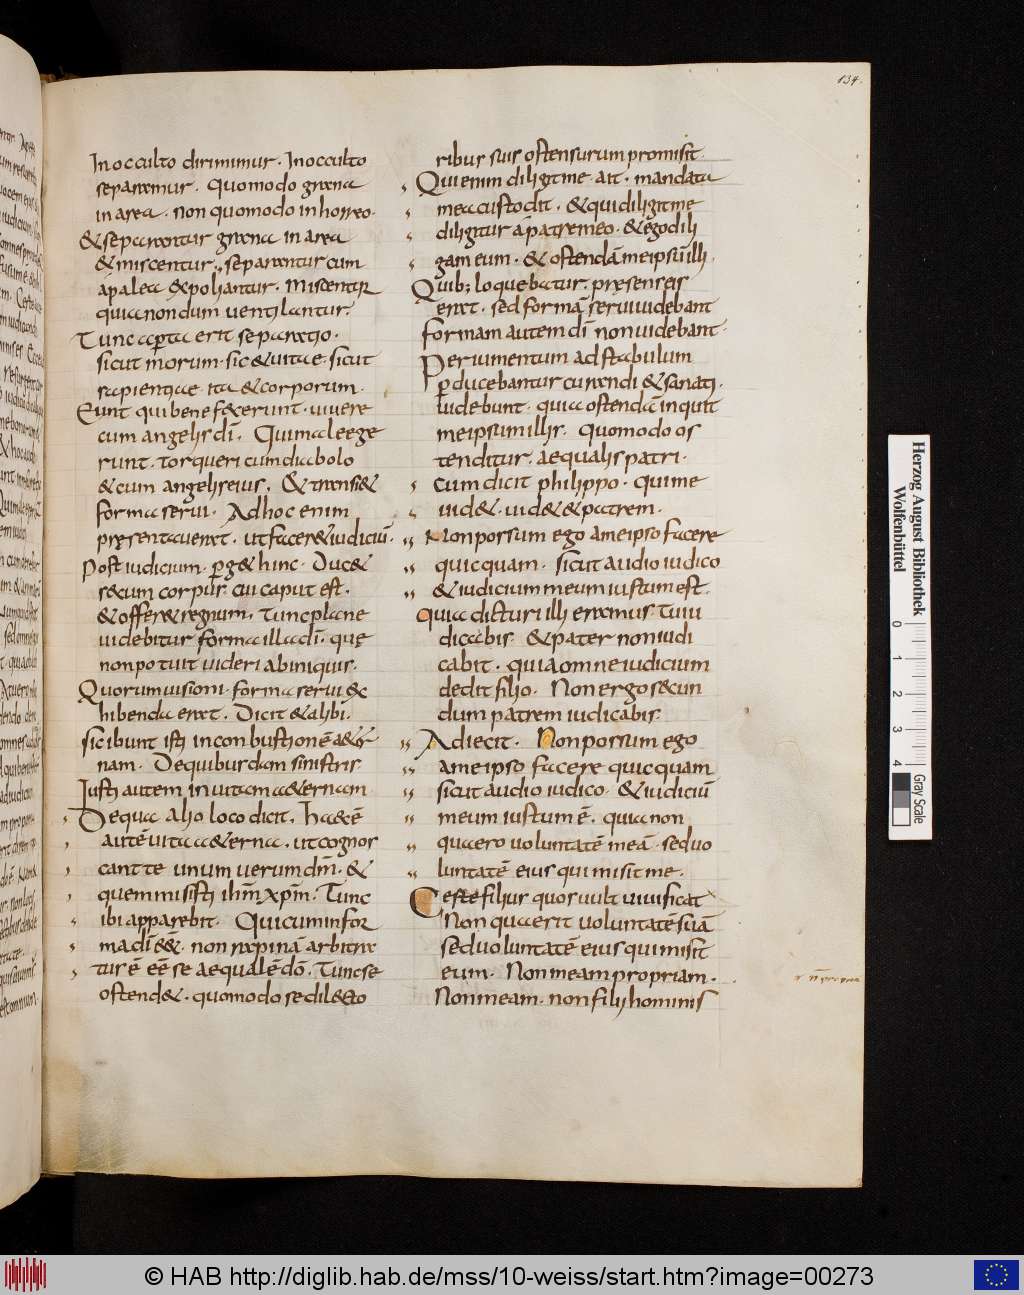 134.
In occulto dirimimur. In occulto
separemur. Quomodo grana
in area. non quomodo in horreo.
& separantur grana in area
& miscentur; separantur cum
a palea expoliantur. Miscentur
quia nondum uentilantur.
Tunc aperta erit separatio.
sicut morum. sic & uitae. sicut
sapientiae ita & corporum.
Eunt qui bene fecerunt. uiuere
cum angelis dī. Qui male ege
runt. torqueri cum diabolo
& cum angelis eius. Et transi&
forma serui. Ad hoc enim
presentauerat. ut facer& iudiciū.
Post iudicium. perg& hinc. Duc&
secum corpus cui caput est.
& offer& regnum. Tunc plane
uidebitur forma illa dī. que
non potuit uideri ab iniquis.
Quorum uisioni. forma serui ex
hibenda erat. Dicit & alibi.
sic ibunt isti in conbustionē a&er
nam. De quibusdam sinistris
Iusti autem in uitam a&ernam
De qua alio loco dicit. Haec ē
autē uita a&erna. ut cognos
cant te unum uerum dm̄. &
quem misisti ihm̄ xpm̄. Tunc
ibi apparebit. Qui cum in for
ma dī ē&. non rapinā arbitra
tur ē eē se aequalē dō. Tunc se
ostend&. quomodo se dilecto
ribus suis ostensurum promisit.
Qui enim diligit me. ait. mandata
mea custodit. & qui diligit me
diligitur a patre meo. & ego dili
gam eum. & ostendā me ipsū illi.
Quib; loquebatur. presens eis
erat. sed formā serui uidebant
formam autem dī non uidebant.
Per iumentum ad stabulum
perducebantur curandi & sanati.
uidebunt. quia ostendā inquit
me ipsum illis. Quomodo os
tenditur. aequalis patri.
cum dicit philippo. qui me
uid&. uid& & patrem.
Non possum ego a me ipso facere
quicquam. sicut audio iudico
& iudicium meum iustum est.
Quia dicturi illi eramus tu iu
dicabis. & pater non iudi
cabit. quia omne iudicium
dedit filio. Non ergo secun
dum patrem iudicabis.
Adiecit. Non possum ego
a me ipso facere quicquam
sicut audio iudico. & iudiciū
meum iustum ē. quia non
quaero uoluntatē meā. sed uo
luntatē eius qui misit me.
Certe filius quos uult uiuificat
Non quaerit uoluntatē suā
sed uoluntatē eius qui misit
eum. Non meam propriam.
Non meam. non filij hominis
Herzog August Bibliothek
Wolfenbüttel
0 1 2 3 4
Gray Scale
© HAB http://diglib.hab.de/mss/10-weiss/start.htm?image=00273